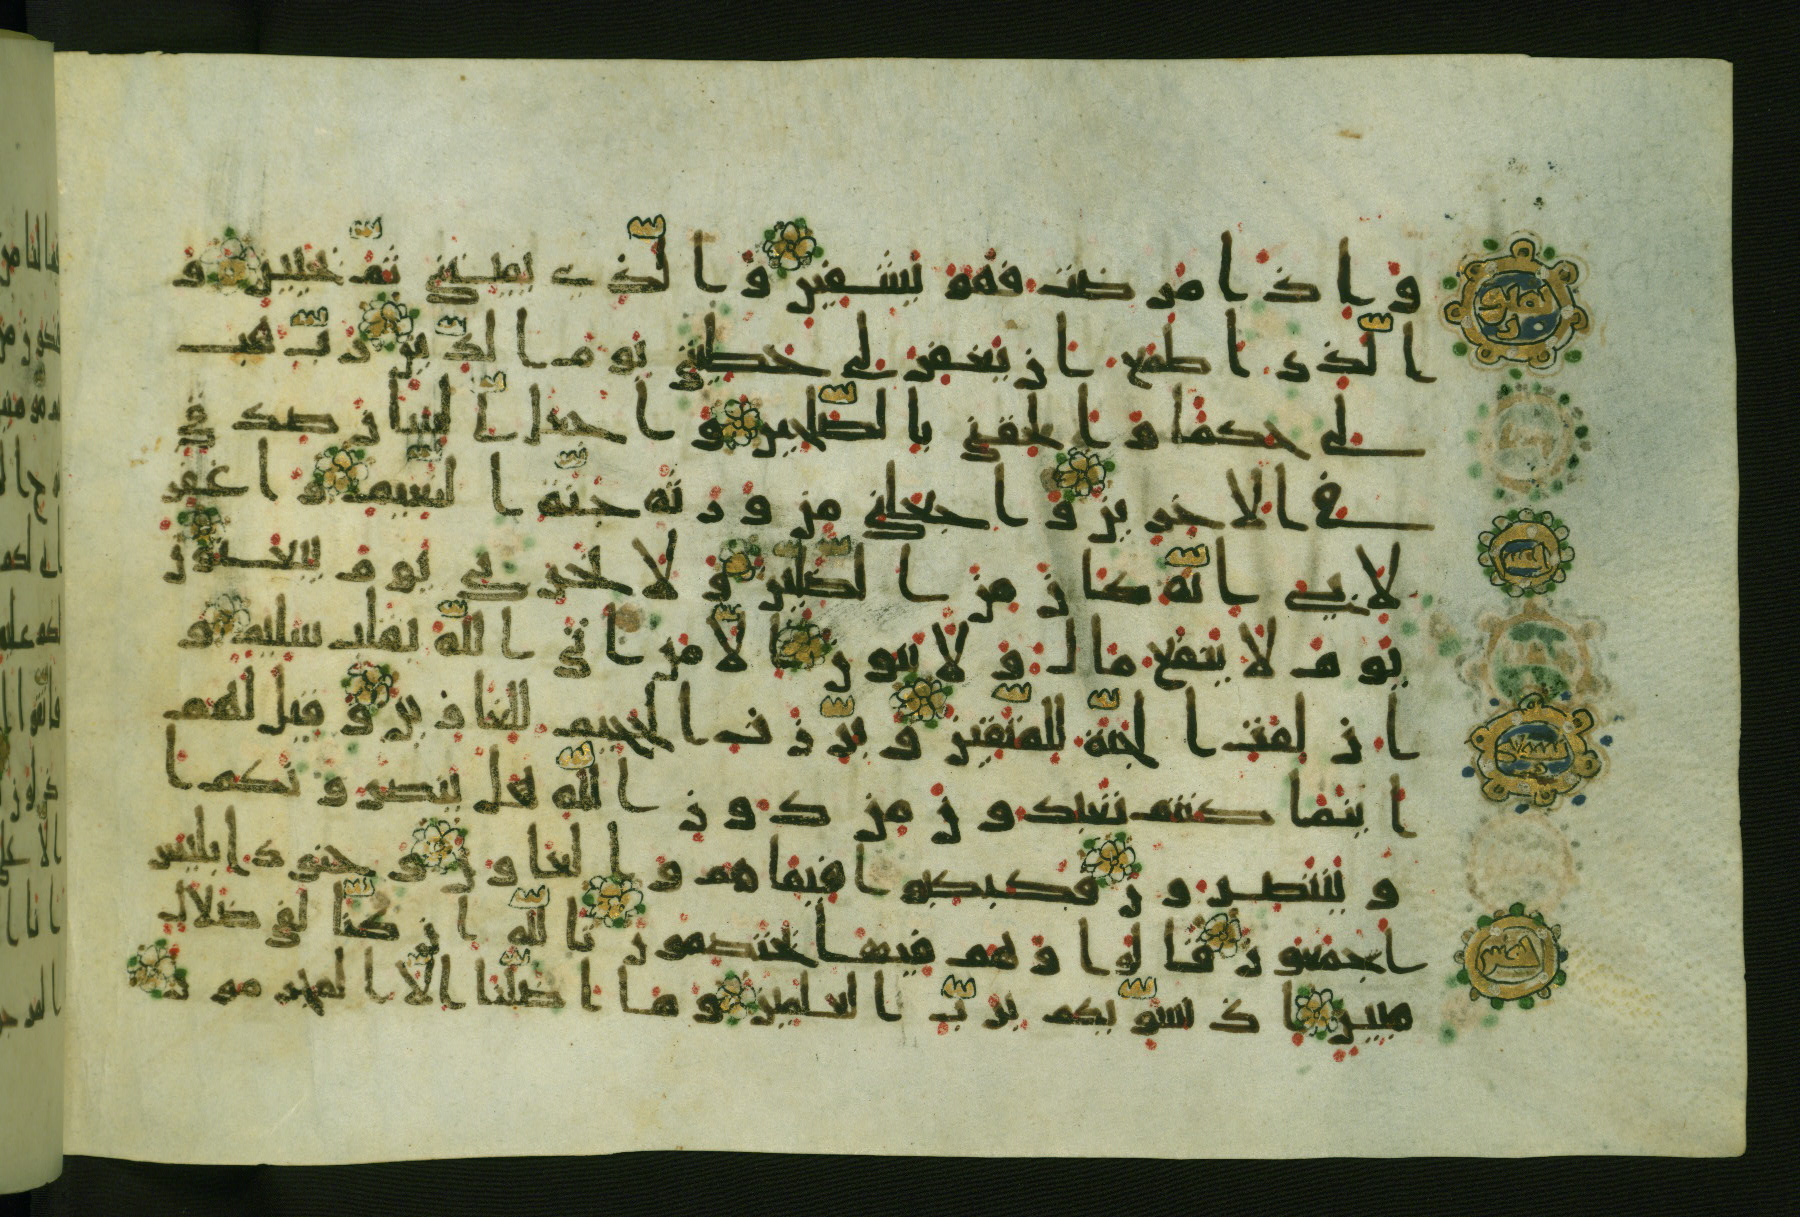 و اذا مرضت فهو يشفين و الذي يميتني ثم يحيين و
الذي اطمع ان يغفر لي خطيئتي يوم الدين رب هب
لي حكما و الحقني بالصلحين و اجعل لي لسان صدق في
في الاخرين و اجعلني من ورثة جنة النعيم و اغفر
لابي انه كان من الضالين و لا تخزني يوم يبعثون
يوم لا ينفع مال و لا بنون الا من اتى الله بقلب سليم و
ازلفت الجنة للمتقين و برزت الجحيم للغاوين و قيل لهم
اينما كنتم تعبدون من دون الله هل ينصرونكم ا
و ينتصرون فكبكبوا فيها هم و الغاون و جنود ابليس
اجمعون قالوا و هم فيها يختصمون تالله ان كنا لفي ضلال
مبين اذ نسويكم برب العلمين و ما اضلنا الا المجرمون